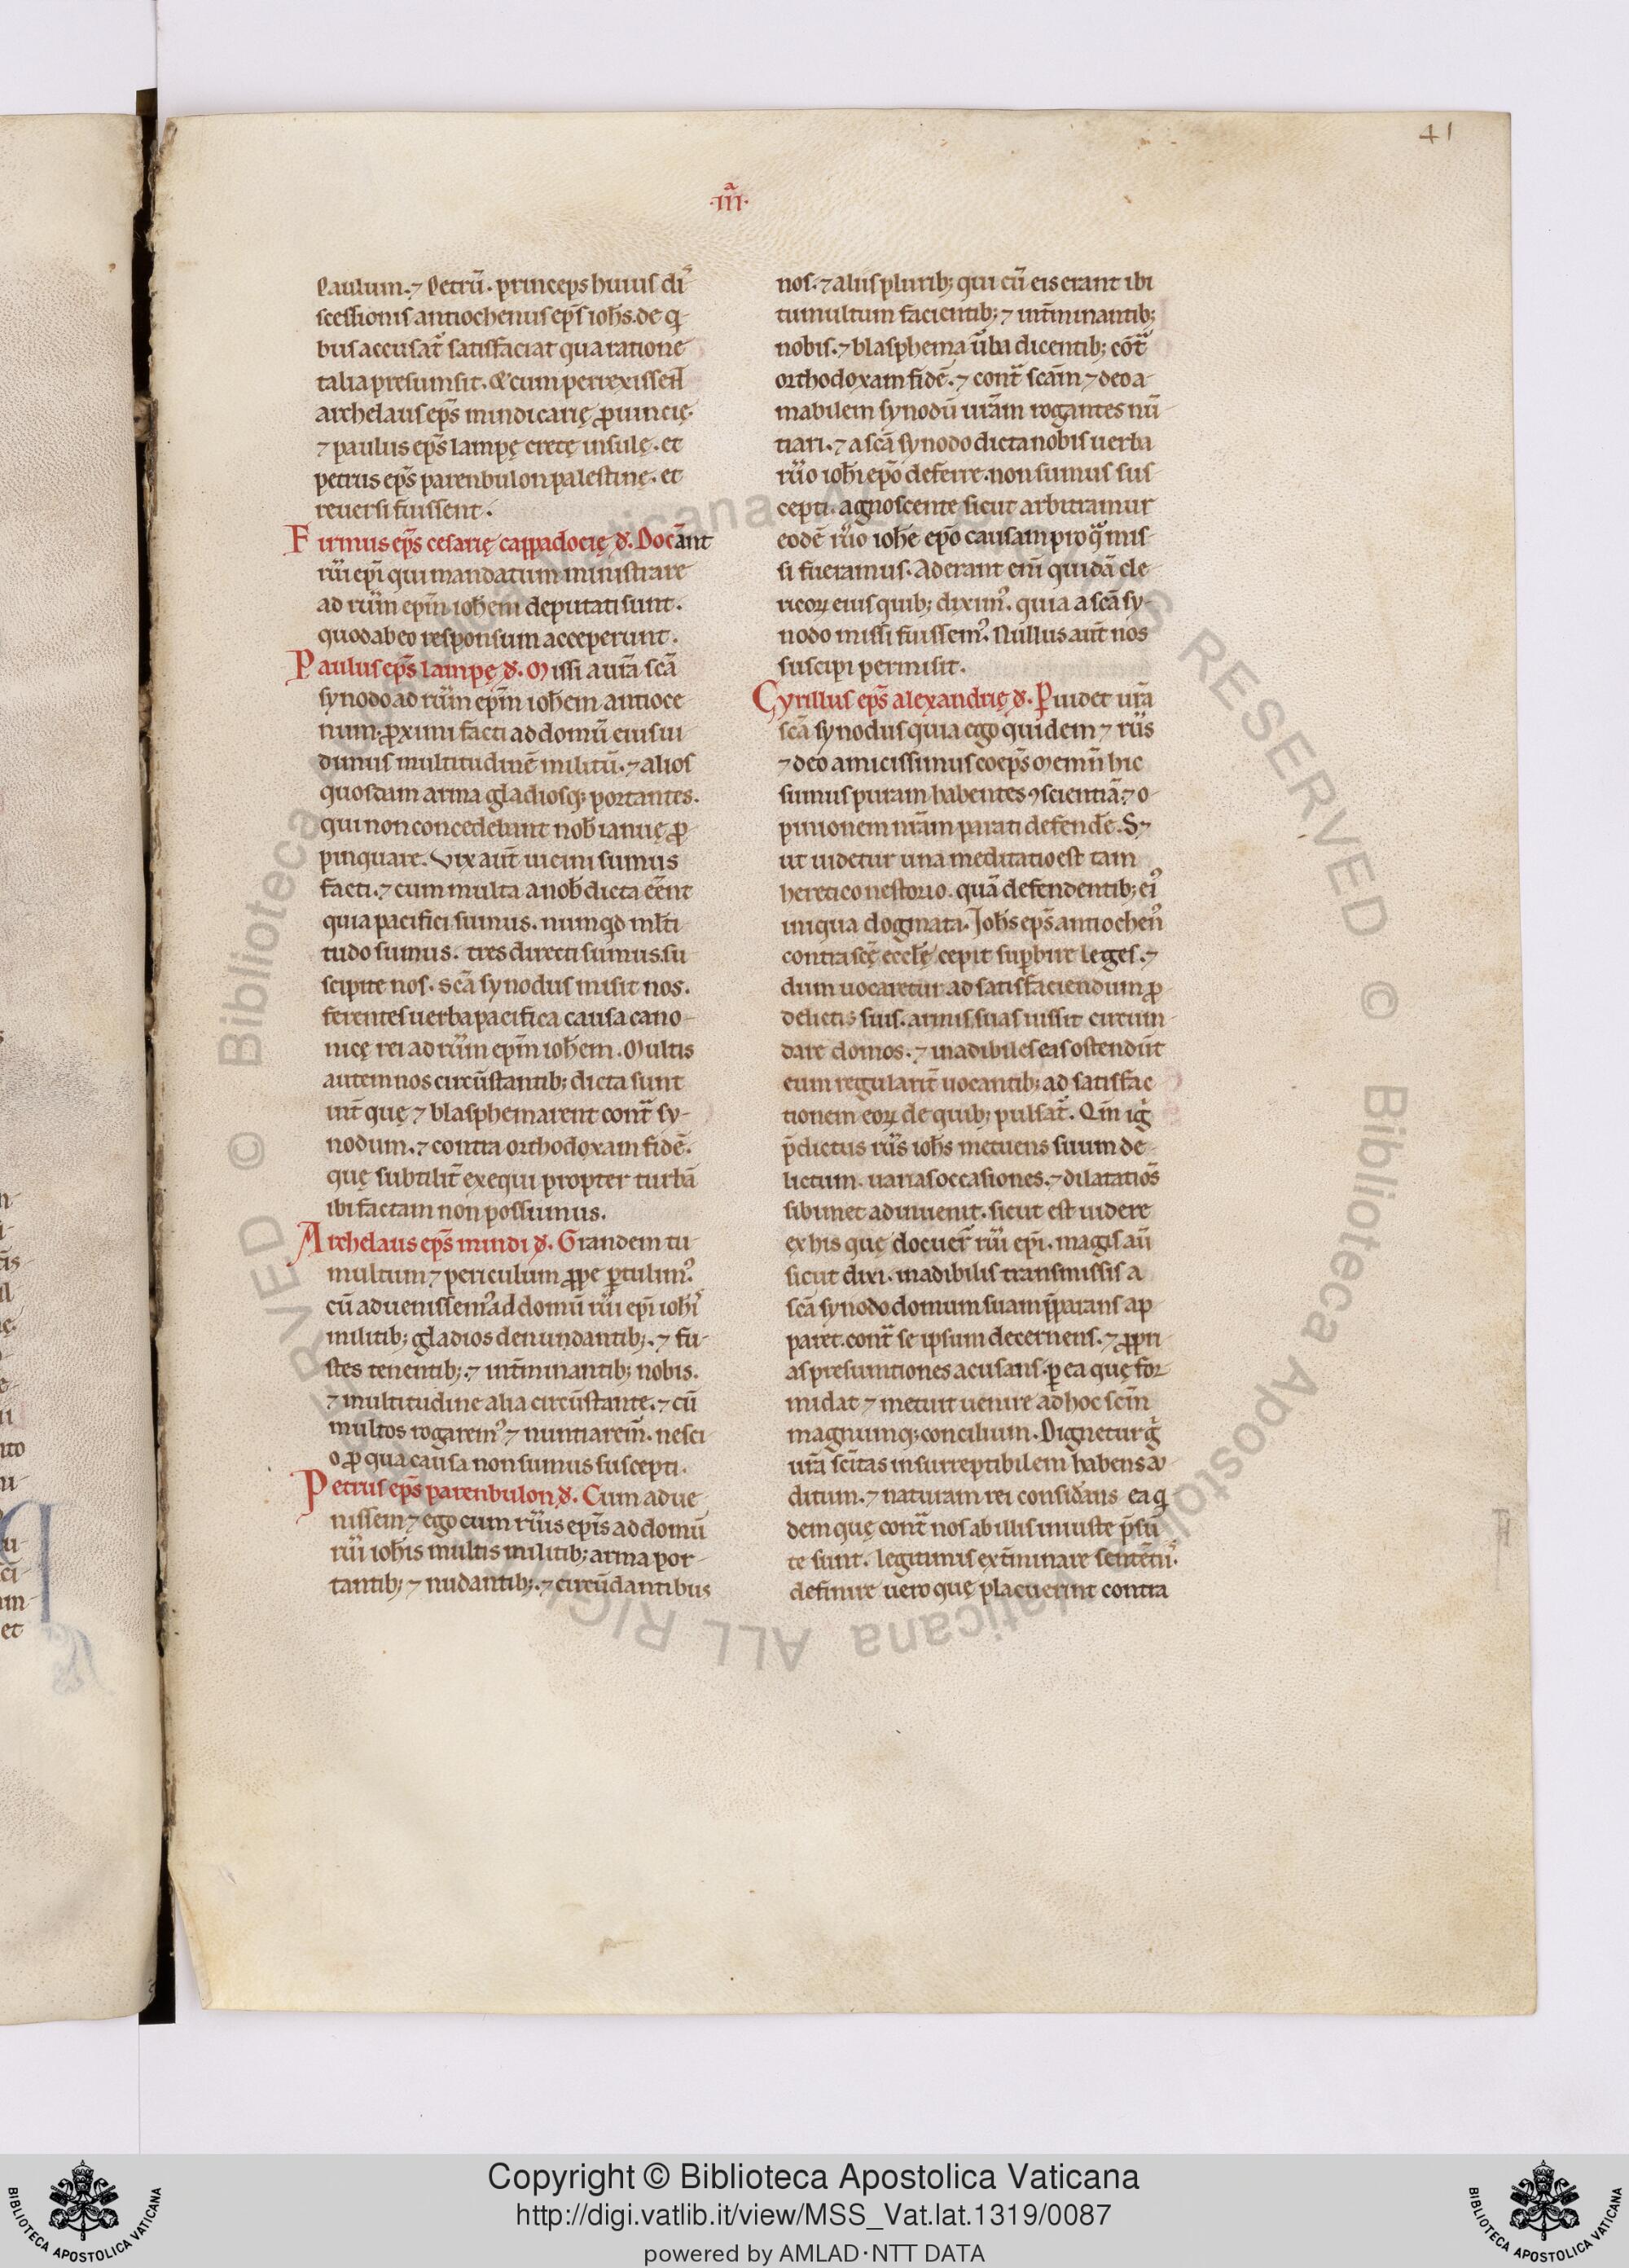 41
·III·ᵃ
Paulum·⁊ Petrū· princeps huius di
scessionis antiochenus ep̄s ioh̄s· de q
bus accusat̄ satisfaciat qua ratione
talia presumsit· Et cum perrexissent
archelaus ep̄s mindicarię prouincię·
⁊ paulus ep̄s lampę cretę insulę· et
petrus ep̄s parenbulon palestinę· et
reuersi fuissent·
Firmus ep̄s cesarię cappadocię d̄· Doceant
rūi ep̄i qui mandatum ministrare
ad rūm ep̄m ioh̄em deputati sunt·
quod ab eo responsum acceperunt·
Paulus ep̄s lampę d̄· Missi a ur̄a sc̄a
synodo ad rūm ep̄m ioh̄em antioce
num· proximi facti ad domū eius ui
dimus multitudinē militū·⁊ alios
quosdam arma gladiosq; portantes·
qui non concedebant nob̄ ianuę pro
pinquare· Vix aut̄ uicini sumus
facti·⁊ cum multa a nob̄ dicta eēnt
quia pacifici sumus· numqd ml̄ti
tudo sumus· tres directi sumus· su
scipite nos· Sc̄a synodus misit nos·
ferentes uerba pacifica causa cano
nicę rei ad rūm ep̄m ioh̄em· Multis
autem nos circūstantib; dicta sunt
int̄ quę ⁊ blasphemarent cont̄ sy-
nodum·⁊ contra orthodoxam fidē·
quę subtilit̄ exequi propter turbā
ibi factam non possumus·
Archelaus ep̄s mindi d̄· Grandem tu
multum ⁊ periculum prope ꝑtulim᾽
cū aduenissem᾽ ad domū rūi ep̄i ioh̄i᾽
militib; gladios denundantib;·⁊ fu-
stes tenentib;·⁊ int̄minantib; nobis·
⁊ multitudine alia circūstante·⁊ cū
multos rogarem᾽ ⁊ nuntiarem᾽· nesci
o pro qua causa non sumus suscepti·
Petrus ep̄s parenbulon d̄· Cum adue
nissem ⁊ ego cum rūis ep̄is ad domū
rūi ioh̄is multis militib; arma por-
tantib; ⁊ nudantib;·⁊ circūdantibus
nos·⁊ aliis plurib; qui cū eis erant ibi
tumultum facientib; ⁊ int̄minantib;
nobis·⁊ blasphema ūba dicentib; cōt̄
orthodoxam fidē·⁊ cont̄ sc̄am ⁊ deo a
mabilem synodū ur̄am rogantes nū
tiari·⁊ a sc̄a synodo dicta nobis uerba
rūo ioh̄i ep̄o deferre· non sumus sus
cepti· agnoscente sicut arbitramur
eodē rūo ioh̄e ep̄o causam pro qua mis
si fueramus· Aderant eni̅ quidā cle
ricoꝝ eius quib; dixim᾽· quia a sc̄a sy-
nodo missi fuissem᾽· Nullus aut̄ nos
suscipi permisit·
Cyrillus ep̄s alexandrię d̄· Puidet ur̄a
sc̄a synodus quia ego quidem ⁊ rūs
⁊ deo amicissimus coep̄s memn̄ hic
sumus puram habentes ꝯscientiā·⁊ o-
pinionem nr̄am parati defende᷑· S⁊
ut uidetur una meditatio est tam
heretico nestorio· quā defendentib; ei᾽
iniqua dogmata· Ioh̄s ep̄s antiochen᾽
contra sc̄ę eccl̄ę cepit suꝑbire leges·⁊
dum uocaretur ad satisfaciendum pro
delictis suis· armis suas iussit circum
dare domos·⁊ inadibiles eas ostendūt
eum regularit̄ uocantib; ad satisfac
tionem eoꝝ de quib; pulsat̄· Qm̄ ig̊
p̄dictus rūs ioh̄s metuens suum de
lictum· uarias occasiones·⁊ dilatatiōs
sibimet adinuenit· sicut est uidere
ex his quę docuer̄ rūi ep̄i· magis aū
sicut dixi· inadibilis transmissis a
sc̄a synodo domum suam p̄parans ap
paret· cont̄ se ipsum decernens·⁊ propri
as presumtiones acusans· ꝑ ea quę for
midat ⁊ metuit uenire ad hoc sc̄m
magnumq; concilium· Dignetur g̊
ur̄a sc̄itas insurreptibilem habens a
ditum·⁊ naturam rei considans ea q
dem quę cont̄ nos ab illis iniuste p̄sū
te sunt· legitimis ext̄minare sentētii᾽·
definire uero quę placuerint contra
Copyright © Biblioteca Apostolica Vaticana
http://digi.vatlib.it/view/MSS_Vat.lat.1319/0087
powered by AMLAD·NTT DATA
BIBLIOTECA APOSTOLICA VATICANA
BIBLIOTECA APOSTOLICA VATICANA